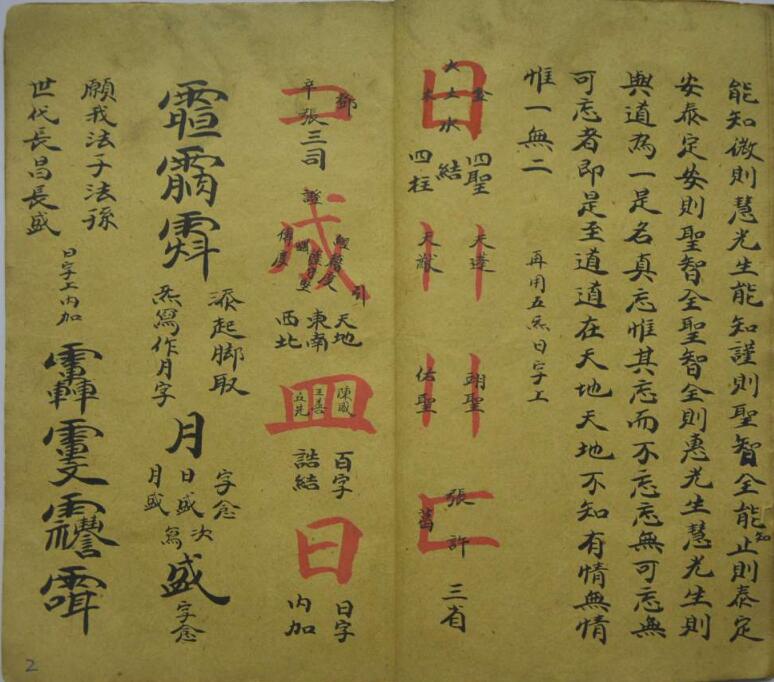 能知微則慧光生能知謹則聖智全能知止則泰定
安泰定安則聖智全聖智全則惠光生慧光生則
與道為一是名真忘惟其忘而不忘忘無可忘無
可忘者即是至道道在天地天地不知有情無情
惟一無二
再用五炁日字工
日
火土水
金
木
四聖
結
四柱
天蓬
天猷
翊聖
佑聖
張
許
葛
三省
鄧
辛張三司
證
成
引
天地
東南
西北
皿
陳
王善
百字
誥結
日
日字
內加
添起脚取
炁寫作月字
月
字念
日盛次
月盛
寫
盛
字念
願我法子法孫
世代長昌長盛
日字工內加
2